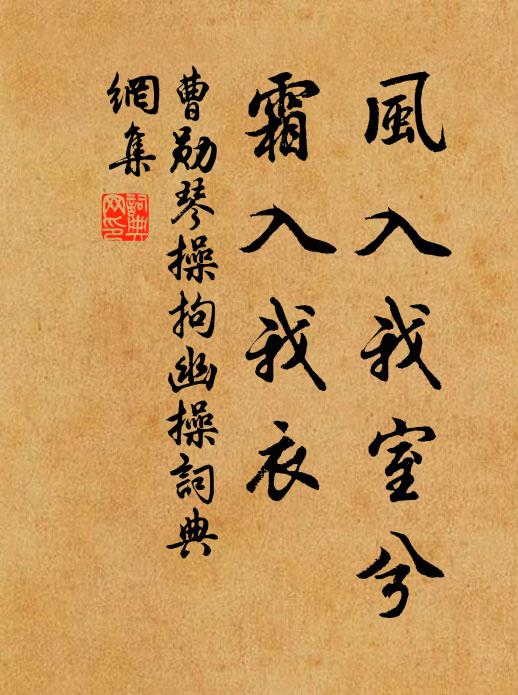 風入我室兮
霜入我衣
曹勛琴操拘幽操詞典
網集
詞典
网印